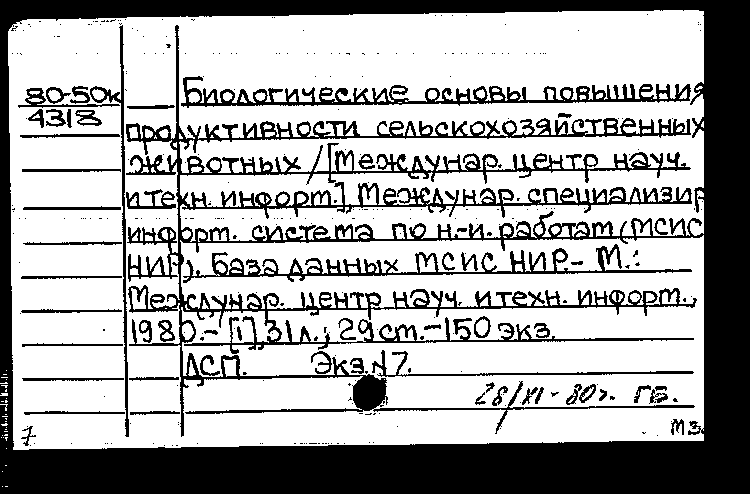 80-50к
4318
Биологические основы повышения
продуктивности сельскохозяйственных
животных / [Междунар. центр науч.
и техн. информ.], Междунар. специализир.
информ. система по н.-и. работам (МСИС
НИР). База данных МСИС НИР. - М.:
Междунар. центр науч. и техн. информ.,
1980. - [1], 31 л.; 29 см. - 150 экз.
ДСП. Экз. N 7.
28/XI - 80 г. ГБ.
7